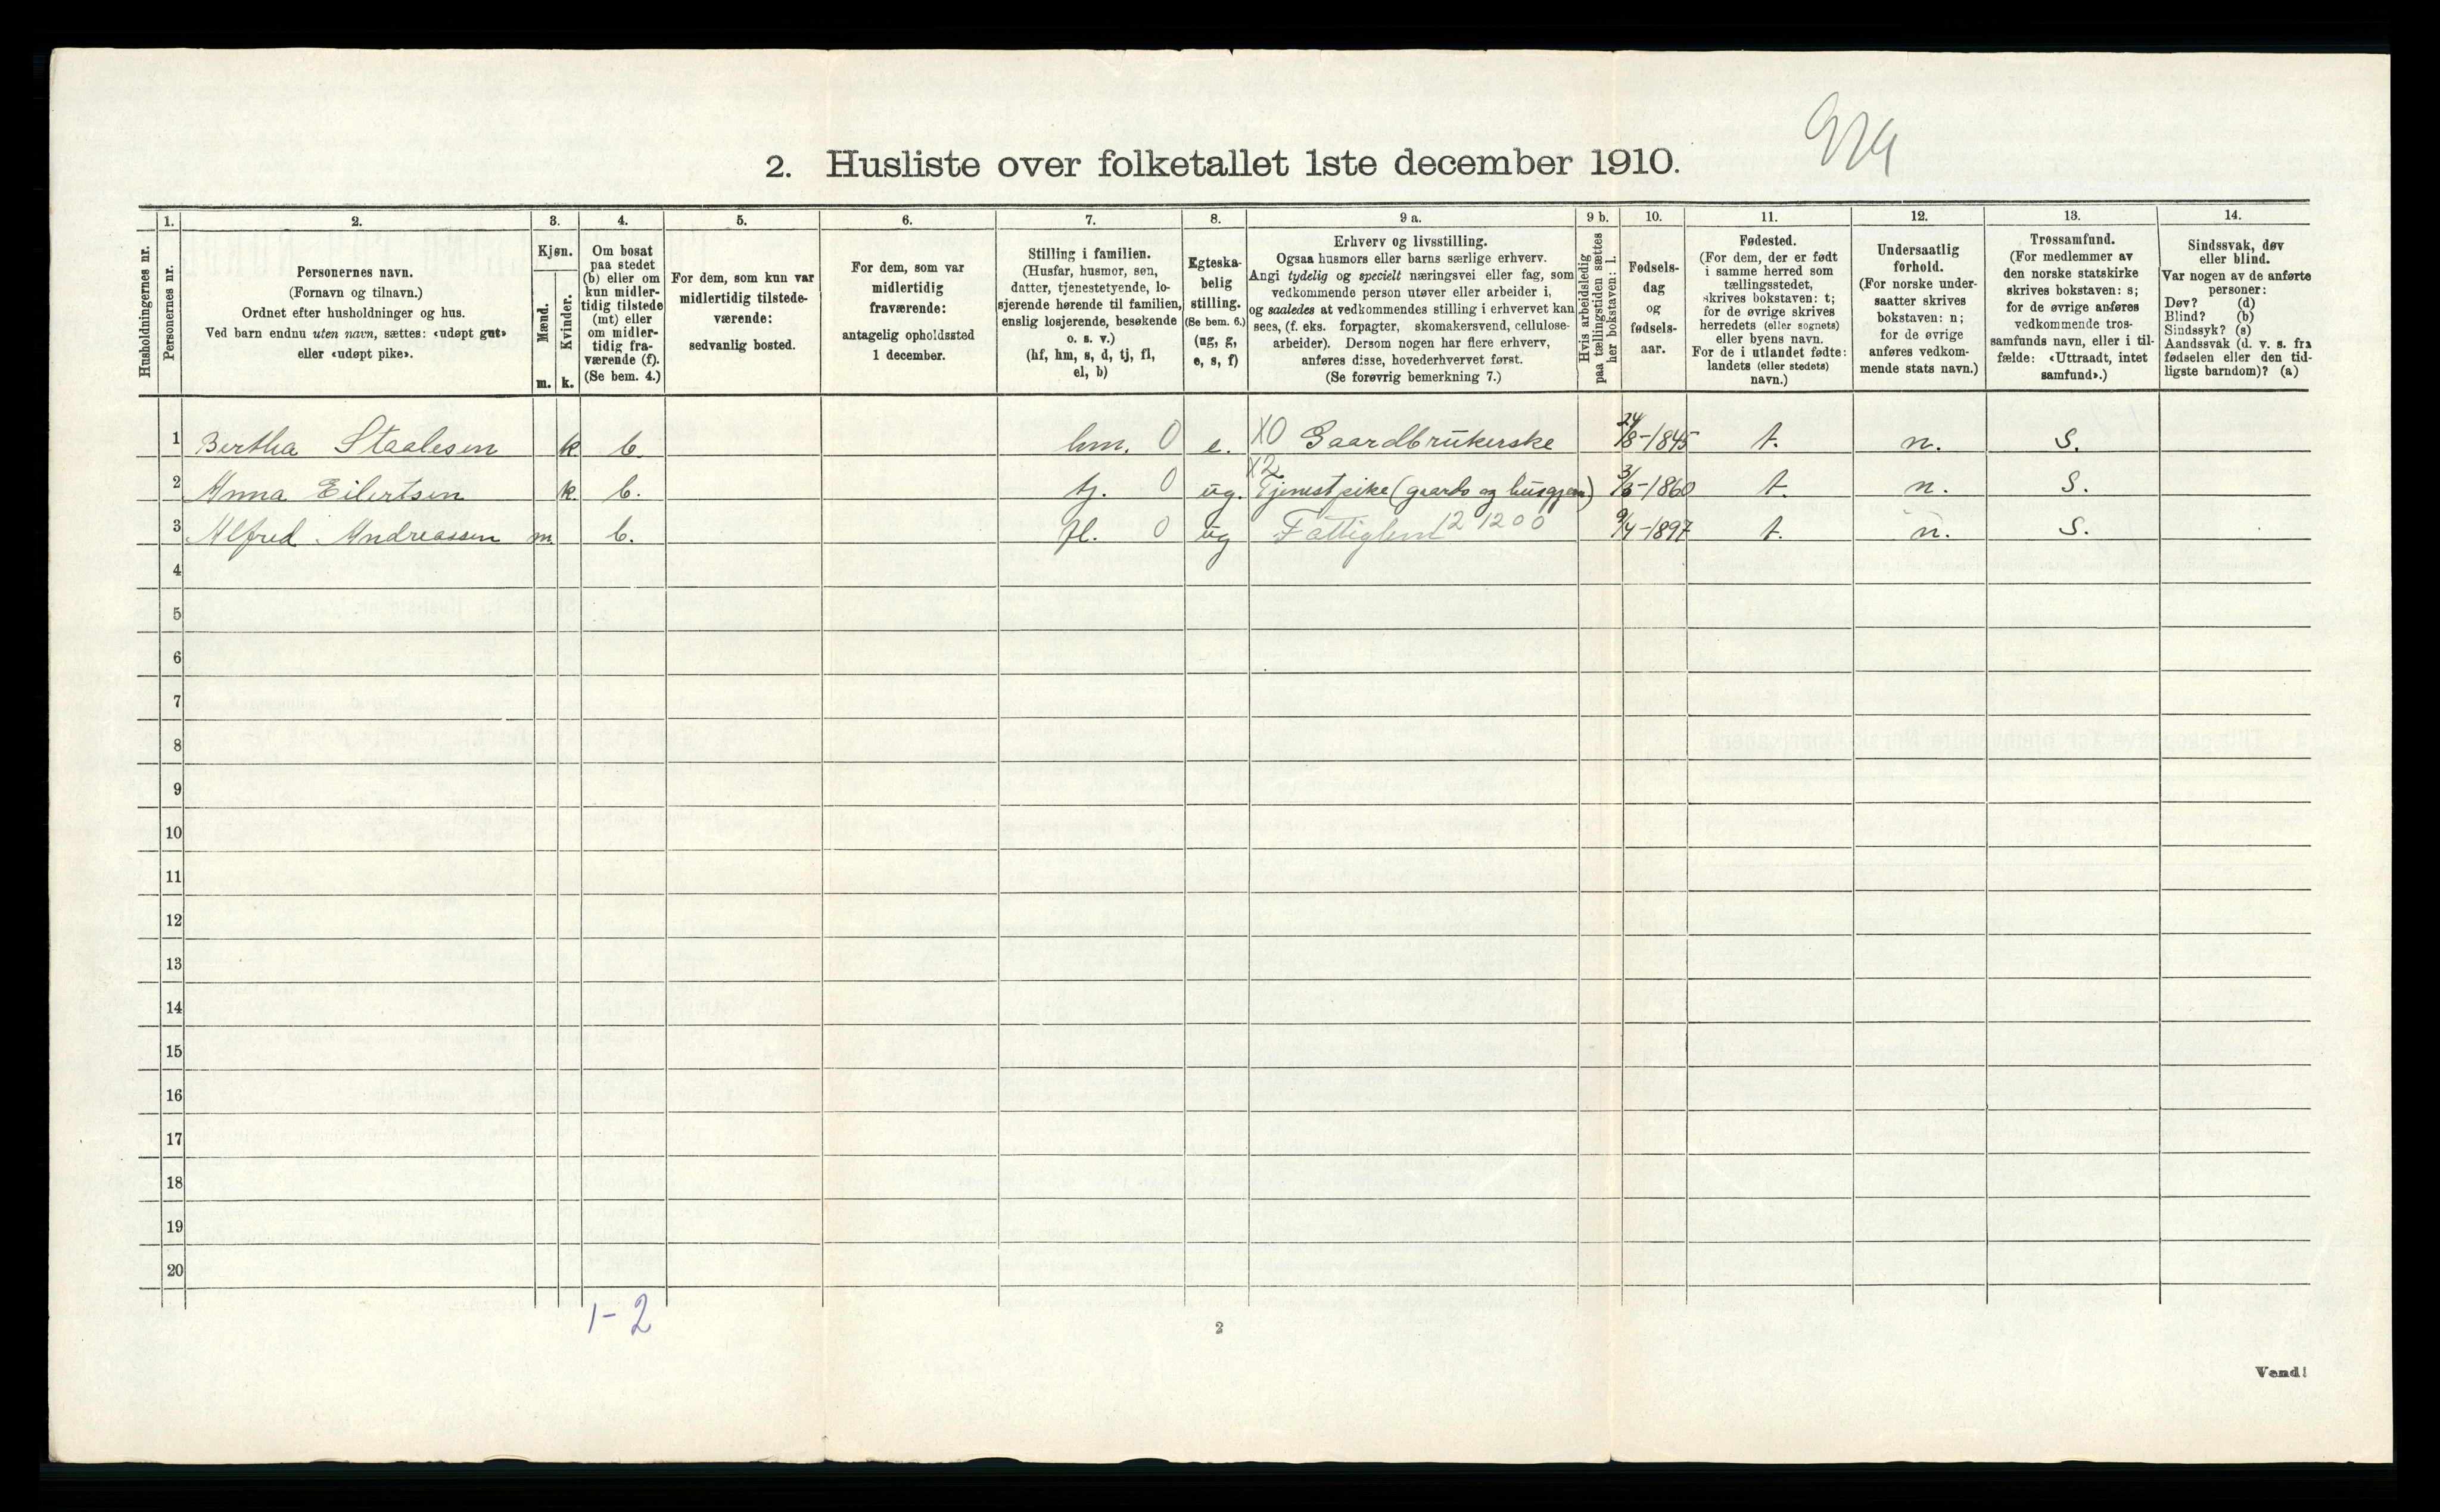 2. Husliste over folketallet 1ste december 1910.
Husholdningernes nr.
1.
Personernes nr.
2.
Personernes navn.
(Fornavn og tilnavn.)
Ordnet efter husholdninger og hus.
Ved barn endnu uten navn, sættes: «udøpt gut»
eller «udøpt pike».
3.
Kjøn.
Mænd.
Kvinder.
m. k.
4.
Om bosat
paa stedet
(b) eller om
kun midler-
tidig tilstede
(mt) eller
om midler-
tidig fra-
værende (f).
(Se bem. 4.)
5.
For dem, som kun var
midlertidig tilstede-
værende:
sedvanlig bosted.
6.
For dem, som var
midlertidig
fraværende:
antagelig opholdssted
1 december.
7.
Stilling i familien.
(Husfar, husmor, søn,
datter, tjenestetyende, lo-
sjerende hørende til familien,
enslig losjerende, besøkende
o. s. v.)
(hf, hm, s, d, tj, fl,
el, b)
8.
Egteska-
belig
stilling.
(Se bem. 6.)
(ug, g,
e, s, f)
9 a.
Erhverv og livsstilling.
Ogsaa husmors eller barns særlige erhverv.
Angi tydelig og specielt næringsvei eller fag, som
vedkommende person utøver eller arbeider i,
og saaledes at vedkommendes stilling i erhvervet kan
sees, (f. eks. forpagter, skomakersvend, cellulose-
arbeider). Dersom nogen har flere erhverv,
anføres disse, hovederhvervet først.
(Se forøvrig bemerkning 7.)
9 b.
Hvis arbeidsledig
paa tællingstiden sættes
her bokstaven: l.
10.
Fødsels-
dag
og
fødsels-
aar.
11.
Fødested.
(For dem, der er født
i samme herred som
tællingsstedet,
skrives bokstaven: t;
for de øvrige skrives
herredets (eller sognets)
eller byens navn.
For de i utlandet fødte:
landets (eller stedets)
navn.)
12.
Undersaatlig
forhold.
(For norske under-
saatter skrives
bokstaven: n;
for de øvrige
anføres vedkom-
mende stats navn.)
13.
Trossamfund.
(For medlemmer av
den norske statskirke
skrives bokstaven: s;
for de øvrige anføres
vedkommende tros-
samfunds navn, eller i til-
fælde: «Uttraadt, intet
samfund».)
14.
Sindssvak, døv
eller blind.
Var nogen av de anførte
personer:
Døv? (d)
Blind? (b)
Sindssyk? (s)
Aandssvak (d. v. s. fra
fødselen eller den tid-
ligste barndom)? (a)
1 Bertha Staalesen k b. hm. 0 e. X0 Gaardbrukerske 24/8-1845 t. n. s.
2 Anna Eilertsen k. b. tj. 0 ug. X2 Tjenestpike (gaards og husgjern) 3/3-1860 t. n. s.
3 Alfred Andreassen m. b. fl. 0 ug Fattiglem 12 1200 9/4-1897 t. n. s.
4
5
6
7
8
9
10
11
12
13
14
15
16
17
18
19
20
1-2
2
Vend!